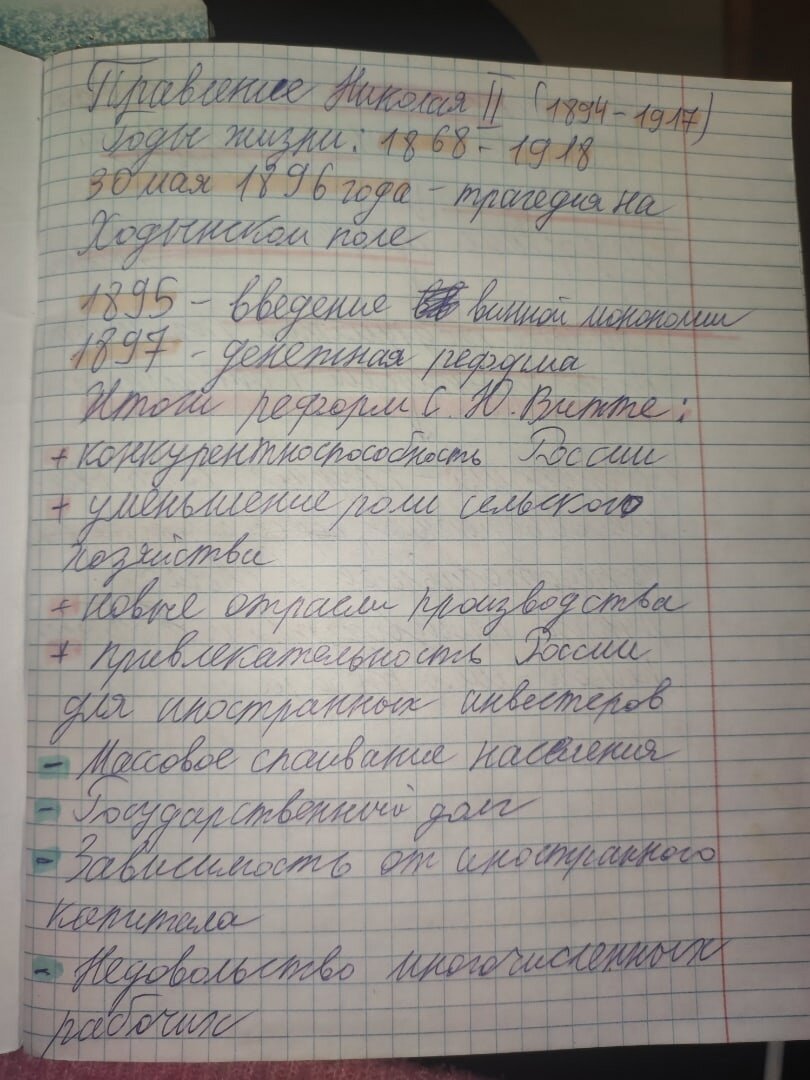 Правление Николая II (1894-1917)
Годы жизни: 1868-1918
30 мая 1896 года - трагедия на
Ходынском поле
1895 - введение винной монополии
1897 - денежная реформа
Итоги реформ С. Ю. Витте:
+ конкурентноспособность России
+ уменьшение роли сельского
хозяйства
+ новые отрасли производства
+ привлекательность России
для иностранных инвестеров
- Массовое спаивание населения
- Государственный долг
- Зависимость от иностранного
капитала
- Недовольство многочисленных
рабочих